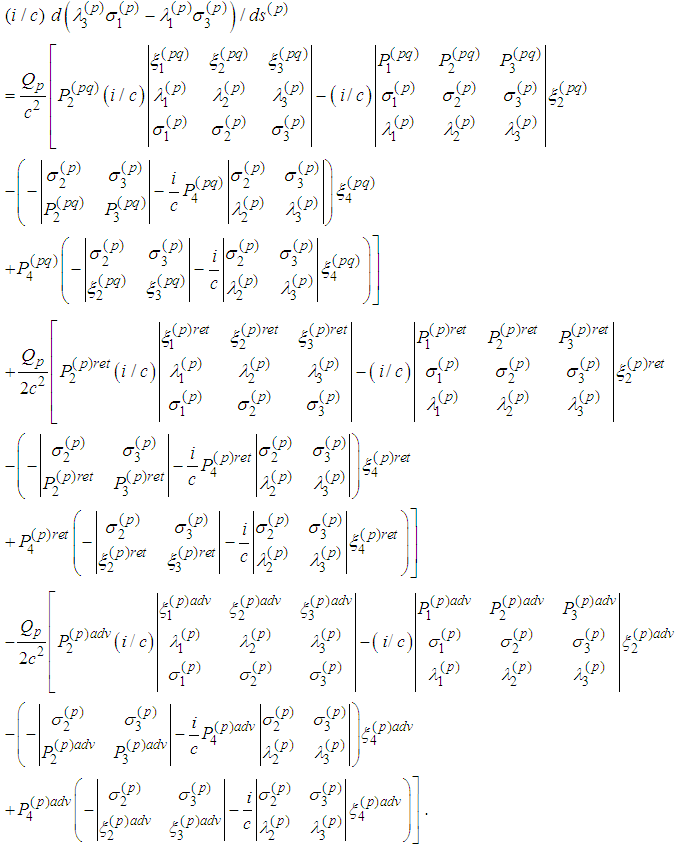 (i / c) d(λ₃^(p) σ₁^(p) − λ₁^(p) σ₃^(p)) / ds^(p)
= Q_p/c² [ P₂^(pq) (i / c) |ξ₁^(pq) ξ₂^(pq) ξ₃^(pq); λ₁^(p) λ₂^(p) λ₃^(p); σ₁^(p) σ₂^(p) σ₃^(p)| − (i / c) |P₁^(pq) P₂^(pq) P₃^(pq); σ₁^(p) σ₂^(p) σ₃^(p); λ₁^(p) λ₂^(p) λ₃^(p)| ξ₂^(pq)
−( −|σ₂^(p) σ₃^(p); P₂^(pq) P₃^(pq)| − i/c P₄^(pq) |σ₂^(p) σ₃^(p); λ₂^(p) λ₃^(p)| ) ξ₄^(pq)
+P₄^(pq) ( −|σ₂^(p) σ₃^(p); ξ₂^(pq) ξ₃^(pq)| − i/c |σ₂^(p) σ₃^(p); λ₂^(p) λ₃^(p)| ξ₄^(pq) ) ]
+ Q_p/2c² [ P₂^(p)ret (i / c) |ξ₁^(p)ret ξ₂^(p)ret ξ₃^(p)ret; λ₁^(p) λ₂^(p) λ₃^(p); σ₁^(p) σ₂^(p) σ₃^(p)| − (i / c) |P₁^(p)ret P₂^(p)ret P₃^(p)ret; σ₁^(p) σ₂^(p) σ₃^(p); λ₁^(p) λ₂^(p) λ₃^(p)| ξ₂^(p)ret
−( −|σ₂^(p) σ₃^(p); P₂^(p)ret P₃^(p)ret| − i/c P₄^(p)ret |σ₂^(p) σ₃^(p); λ₂^(p) λ₃^(p)| ) ξ₄^(p)ret
+P₄^(p)ret ( −|σ₂^(p) σ₃^(p); ξ₂^(p)ret ξ₃^(p)ret| − i/c |σ₂^(p) σ₃^(p); λ₂^(p) λ₃^(p)| ξ₄^(p)ret ) ]
− Q_p/2c² [ P₂^(p)adv (i / c) |ξ₁^(p)adv ξ₂^(p)adv ξ₃^(p)adv; λ₁^(p) λ₂^(p) λ₃^(p); σ₁^(p) σ₂^(p) σ₃^(p)| − (i / c) |P₁^(p)adv P₂^(p)adv P₃^(p)adv; σ₁^(p) σ₂^(p) σ₃^(p); λ₁^(p) λ₂^(p) λ₃^(p)| ξ₂^(p)adv
−( −|σ₂^(p) σ₃^(p); P₂^(p)adv P₃^(p)adv| − i/c P₄^(p)adv |σ₂^(p) σ₃^(p); λ₂^(p) λ₃^(p)| ) ξ₄^(p)adv
+P₄^(p)adv ( −|σ₂^(p) σ₃^(p); ξ₂^(p)adv ξ₃^(p)adv| − i/c |σ₂^(p) σ₃^(p); λ₂^(p) λ₃^(p)| ξ₄^(p)adv ) ] .